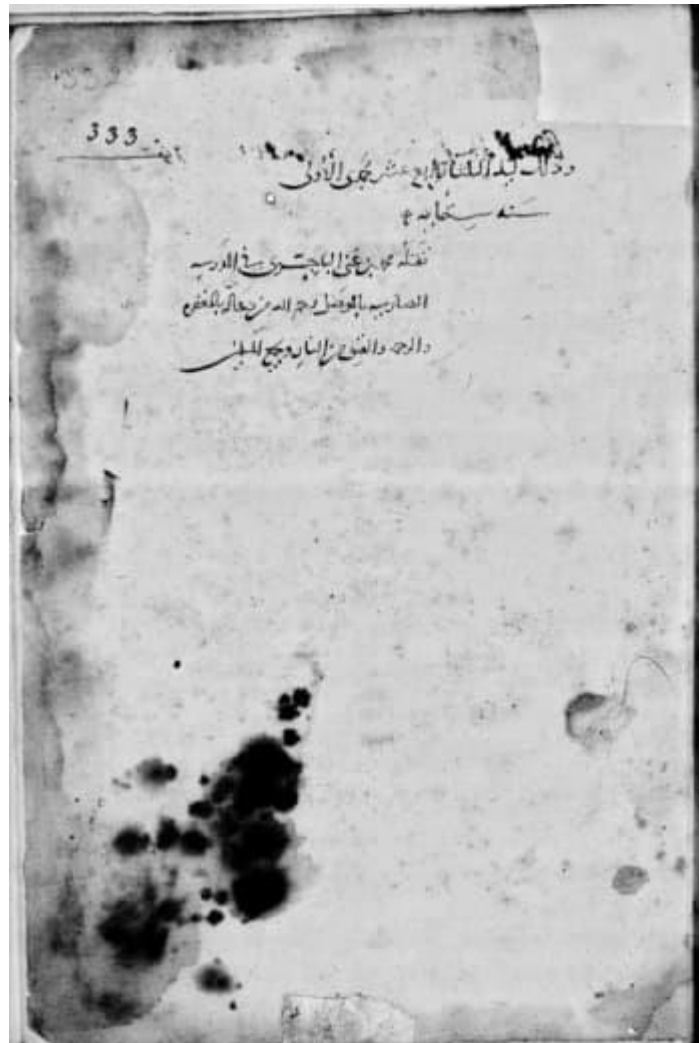 333
وذلك ليلة الثلثا رابع عشر جمدى الأولى
سنه ستمايه
نقله محمد بن غنى الباجسرى فى المدرسه
بالموصل رحم الله من دعا له بالمغفره
والرحمه والعتق من النار وجميع المسلمين